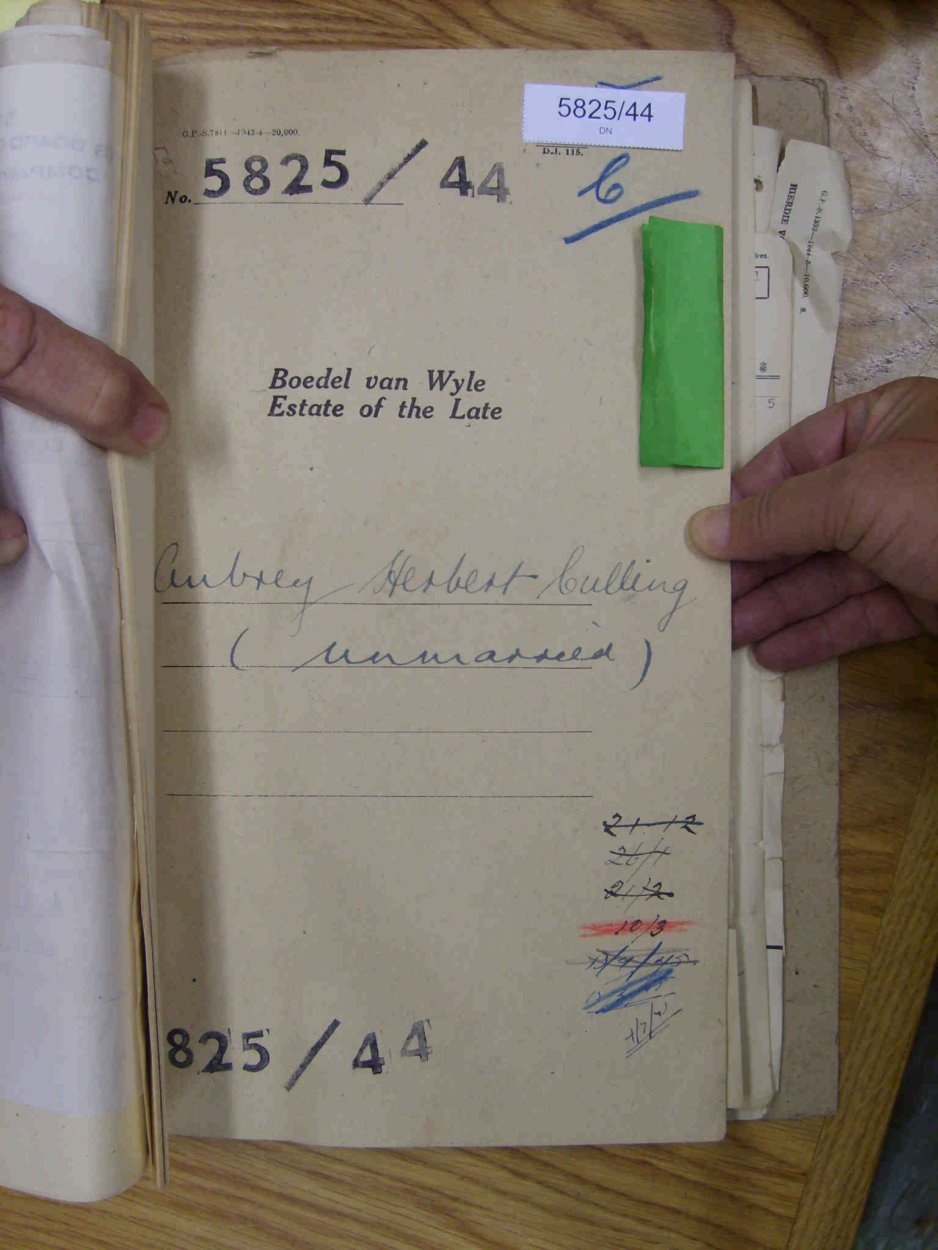 5825/44
DN
G.P.-S.7811—1943-4—20,000.
D.J. 115.
No. 5825/44
6
HIERDIE
Boedel van Wyle
Estate of the Late
5
Aubrey Herbert Culling
(unmarried)
21-12
26/1
21/2
10/3
825/44